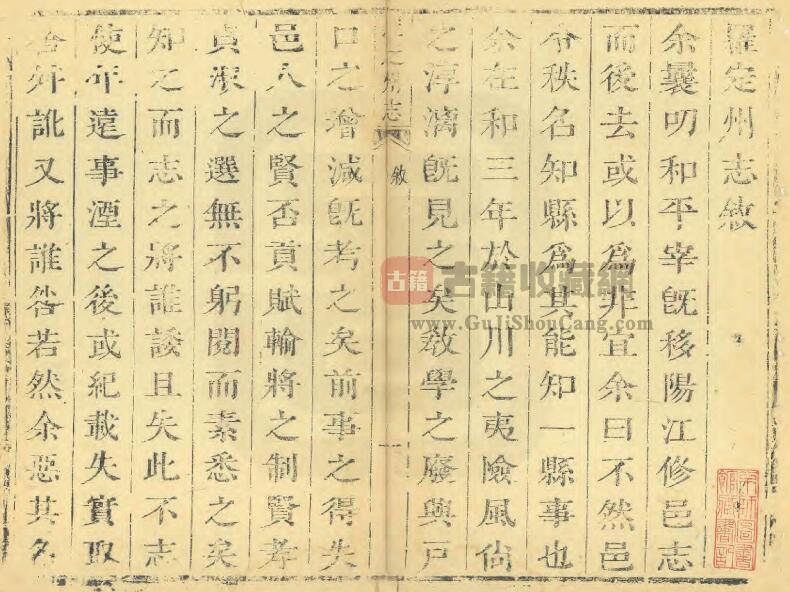 羅定州志敘
余曩叨和平宰旣移陽江修邑志
而後去或以爲非宜余曰不然邑
令秩名知縣爲其能知一縣事也
余在和三年於山川之夷險風尙
之淳漓旣見之矣敎學之廢興戶
州志 敘 一
口之增減旣考之矣前事之得失
邑人之賢否貢賦輸將之制賢孝
貞淑之選無不躬閱而素悉之矣
知之而志之將誰諉且失此不志
使年遠事湮之後或紀載失實取
舍舛訛又將誰咎若然余惡其名
古籍 古籍收藏網
www.GuJiShouCang.com